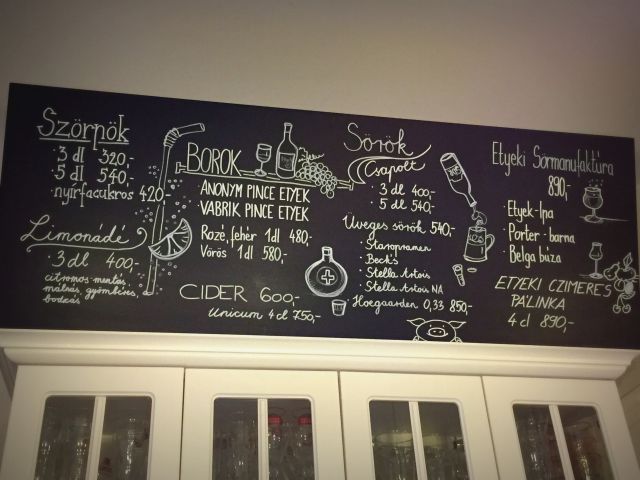 Szörpök
3 dl 320,-
5 dl 540,-
nyírfacukros 420,-
Limonádé
· 3 dl 400,-
citromos-mentás,
málnás, gyömbéres,
bodzás
BOROK
ANONYM PINCE ETYEK
VABRIK PINCE ETYEK
Rozé, fehér 1dl 480,-
Vörös 1 dl 580,-
CIDER 600,-
Unicum 4 cl 750,-
Sörök
Csapolt
· 3 dl 400,-
· 5 dl 540,-
Üveges sörök 540,-
· Staropramen
· Beck's
· Stella Artois
· Stella Artois NA
Hoegaarden 0,33 850,-
Etyeki Sörmanufaktúra
890,-
· Etyek-Ipa
· Porter-barna
· Belga búza
ETYEKI CZÍMERES
PÁLINKA
4 cl 890,-